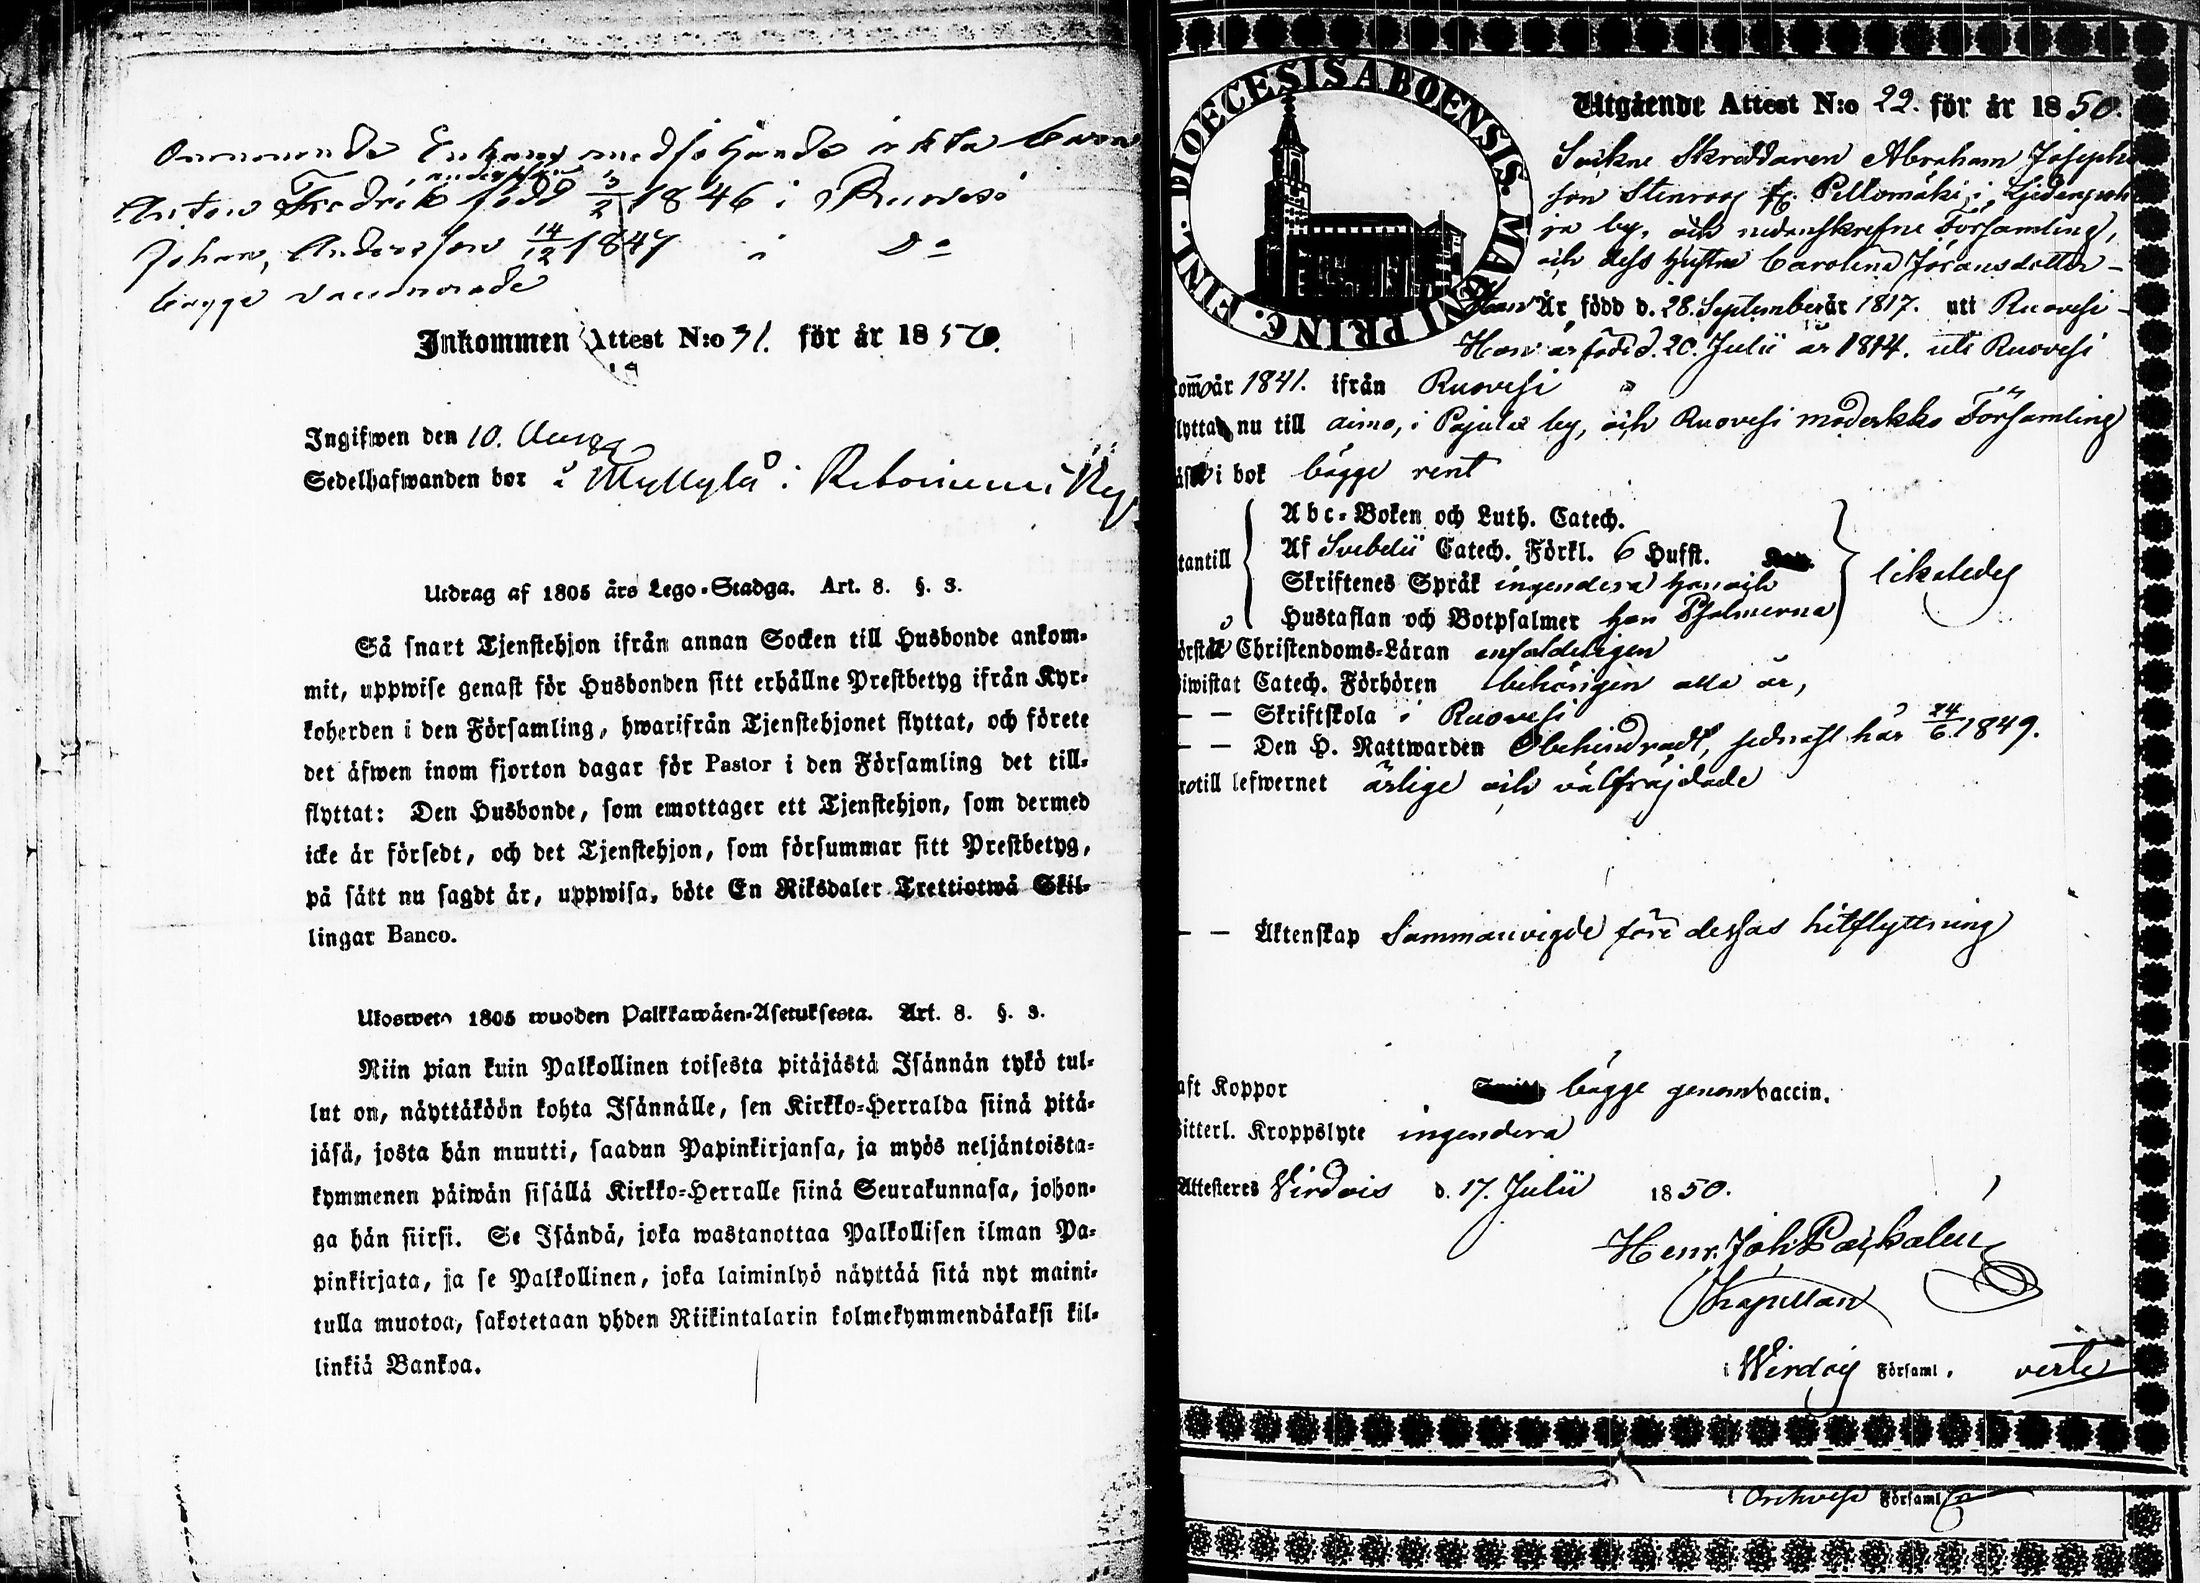 Anton Fredrik född 3/2 1846 i Ruovesi
Johan, Andersson 14/12 1847 i Do
bägge vaccinerade
Inkommen Attest N:o 31. för år 1850.
Ingifwen den 10.
Sedelhafwanden bor i Myllylä i
Utdrag af 1805 års Lego-Stadga. Art. 8. §. 3.
Så snart Tjenstehjon ifrån annan Socken till Husbonde ankom-
mit, uppwise genast för Husbonden sitt erhållne Prestbetyg ifrån Kyr-
koherden i den Församling, hwarifrån Tjenstehjonet flyttat, och förete
det äfwen inom fjorton dagar för Pastor i den Församling det till-
flyttat: Den Husbonde, som emottager ett Tjenstehjon, som dermed
icke är försedt, och det Tjenstehjon, som försummar sitt Prestbetyg,
på sätt nu sagdt är, uppwisa, böte En Riksdaler Trettiotwå Skil-
lingar Banco.
Ulosweto 1805 wuoden Palkkawäen-Asetuksesta. Art. 8. §. 3.
Niin pian kuin Palkollinen toisesta pitäjästä Isännän tykö tul-
lut on, näyttäköön kohta Isännälle, sen Kirkko-Herralda siinä pitä-
jäsä, josta hän muutti, saadun Papinkirjansa, ja myös neljäntoista-
kymmenen päiwän sisällä Kirkko-Herralle siinä Seurakunnasa, johon-
ga hän siirsi. Se Isändä, joka wastanottaa Palkollisen ilman Pa-
pinkirjata, ja se Palkollinen, joka laiminlyö näyttää sitä nyt maini-
tulla muotoa, sakotetaan yhden Riikintalarin kolmekymmendäkaksi kil-
linkiä Bankoa.
DIOECESIS ABOENSIS. MAGNI PRINC. FINL.
Utgående Attest N:o 22. för år 1850.
Sockne Skräddaren Abraham Josephs
son Stenroos fr. Peltomäki i Liedenpoh
ja by, och nedanskrefne Församling,
och dess hustru Carolina Jöransdotter
Hon Är född d. 28. September år 1817. uti Ruovesi
Han är född d. 20. Julii år 1814. uti Ruovesi
kom år 1841. ifrån Ruovesi
flyttar nu till aimo, i Pajula by, och Ruovesi moderkko Församling
läser i bok bägge rent
utantill
Abc-Boken och Luth. Catech.
Af Svebelii Catech. Förkl. 6 Hufst.
Skriftenes Språk ingendera han och
Hustaflan och Botpsalmer hon Psalmerna
likaledes
Förstår Christendoms-Läran enfaldeligen
Biwistat Catech. Förhören behörigen alla år,
— — Skriftskola i Ruovesi
— — Den H. Nattwarden Obehindradt, sednast här 24/6 1849.
Fört till lefwernet ärlige och välfräjdade
— — Äktenskap Sammanvigde före dessas hitflyttning
Haft Koppor bägge genom vaccin.
Witterl. Kroppslyte ingendera
Attesteres Virdois d. 17. Julii 1850.
Henr. Joh.
Kapellan
i Wirdois Församl. verte
i Församl